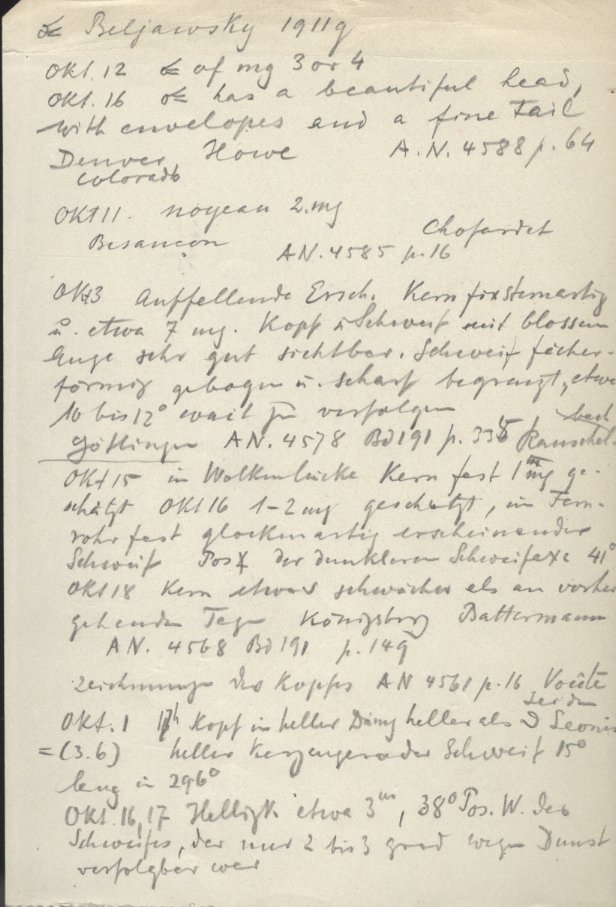 ☄ Beljawsky 1911g
Okt. 12 ☄ of mg 3 or 4
Okt. 16 ☄ has a beautiful head,
with envelopes and a fine Tail
Denver, Howe A.N. 4588 p. 64
Colorado
Okt 11. noyeau 2. mg
Chofardet
Besançon AN. 4585 p. 16
Okt 3 Auffellende Ersch. Kern fixsternartig
u. etwa 7 mg. Kopf u Schweif mit blossem
Auge sehr gut sichtbar. Schweif fächer-
förmig gebogen u. scharf begrenzt, etwa
10 bis 12° weit zu verfolgen
Göttingen AN. 4578 Bd 191 p. 335
Okt 15 in Wolkenlücke Kern fast 1m mg ge-
schätzt Okt 16 1-2 mg geschätzt, im Fern-
rohr fast glockenartig erscheinender
Schweif Pos ∡ der dunkleren Schweifaxe 41°
Okt 18 Kern etwas schwächer als an vorher
gehenden Tagen Königsberg Battermann
AN. 4568 Bd 191 p. 149
Zeichnung des Kopfes AN 4561 p. 16 Voûte
Okt. 1 17h Kopf in heller Dämg heller als Leonis
= (3.6) heller kerzengerader Schweif 15°
lang in 296°
Okt. 16, 17 Helligk etwa 3m, 38° Pos. W. des
Schweifes, der nur 2 bis 3 grad wegen Dunst
verfolgbar war